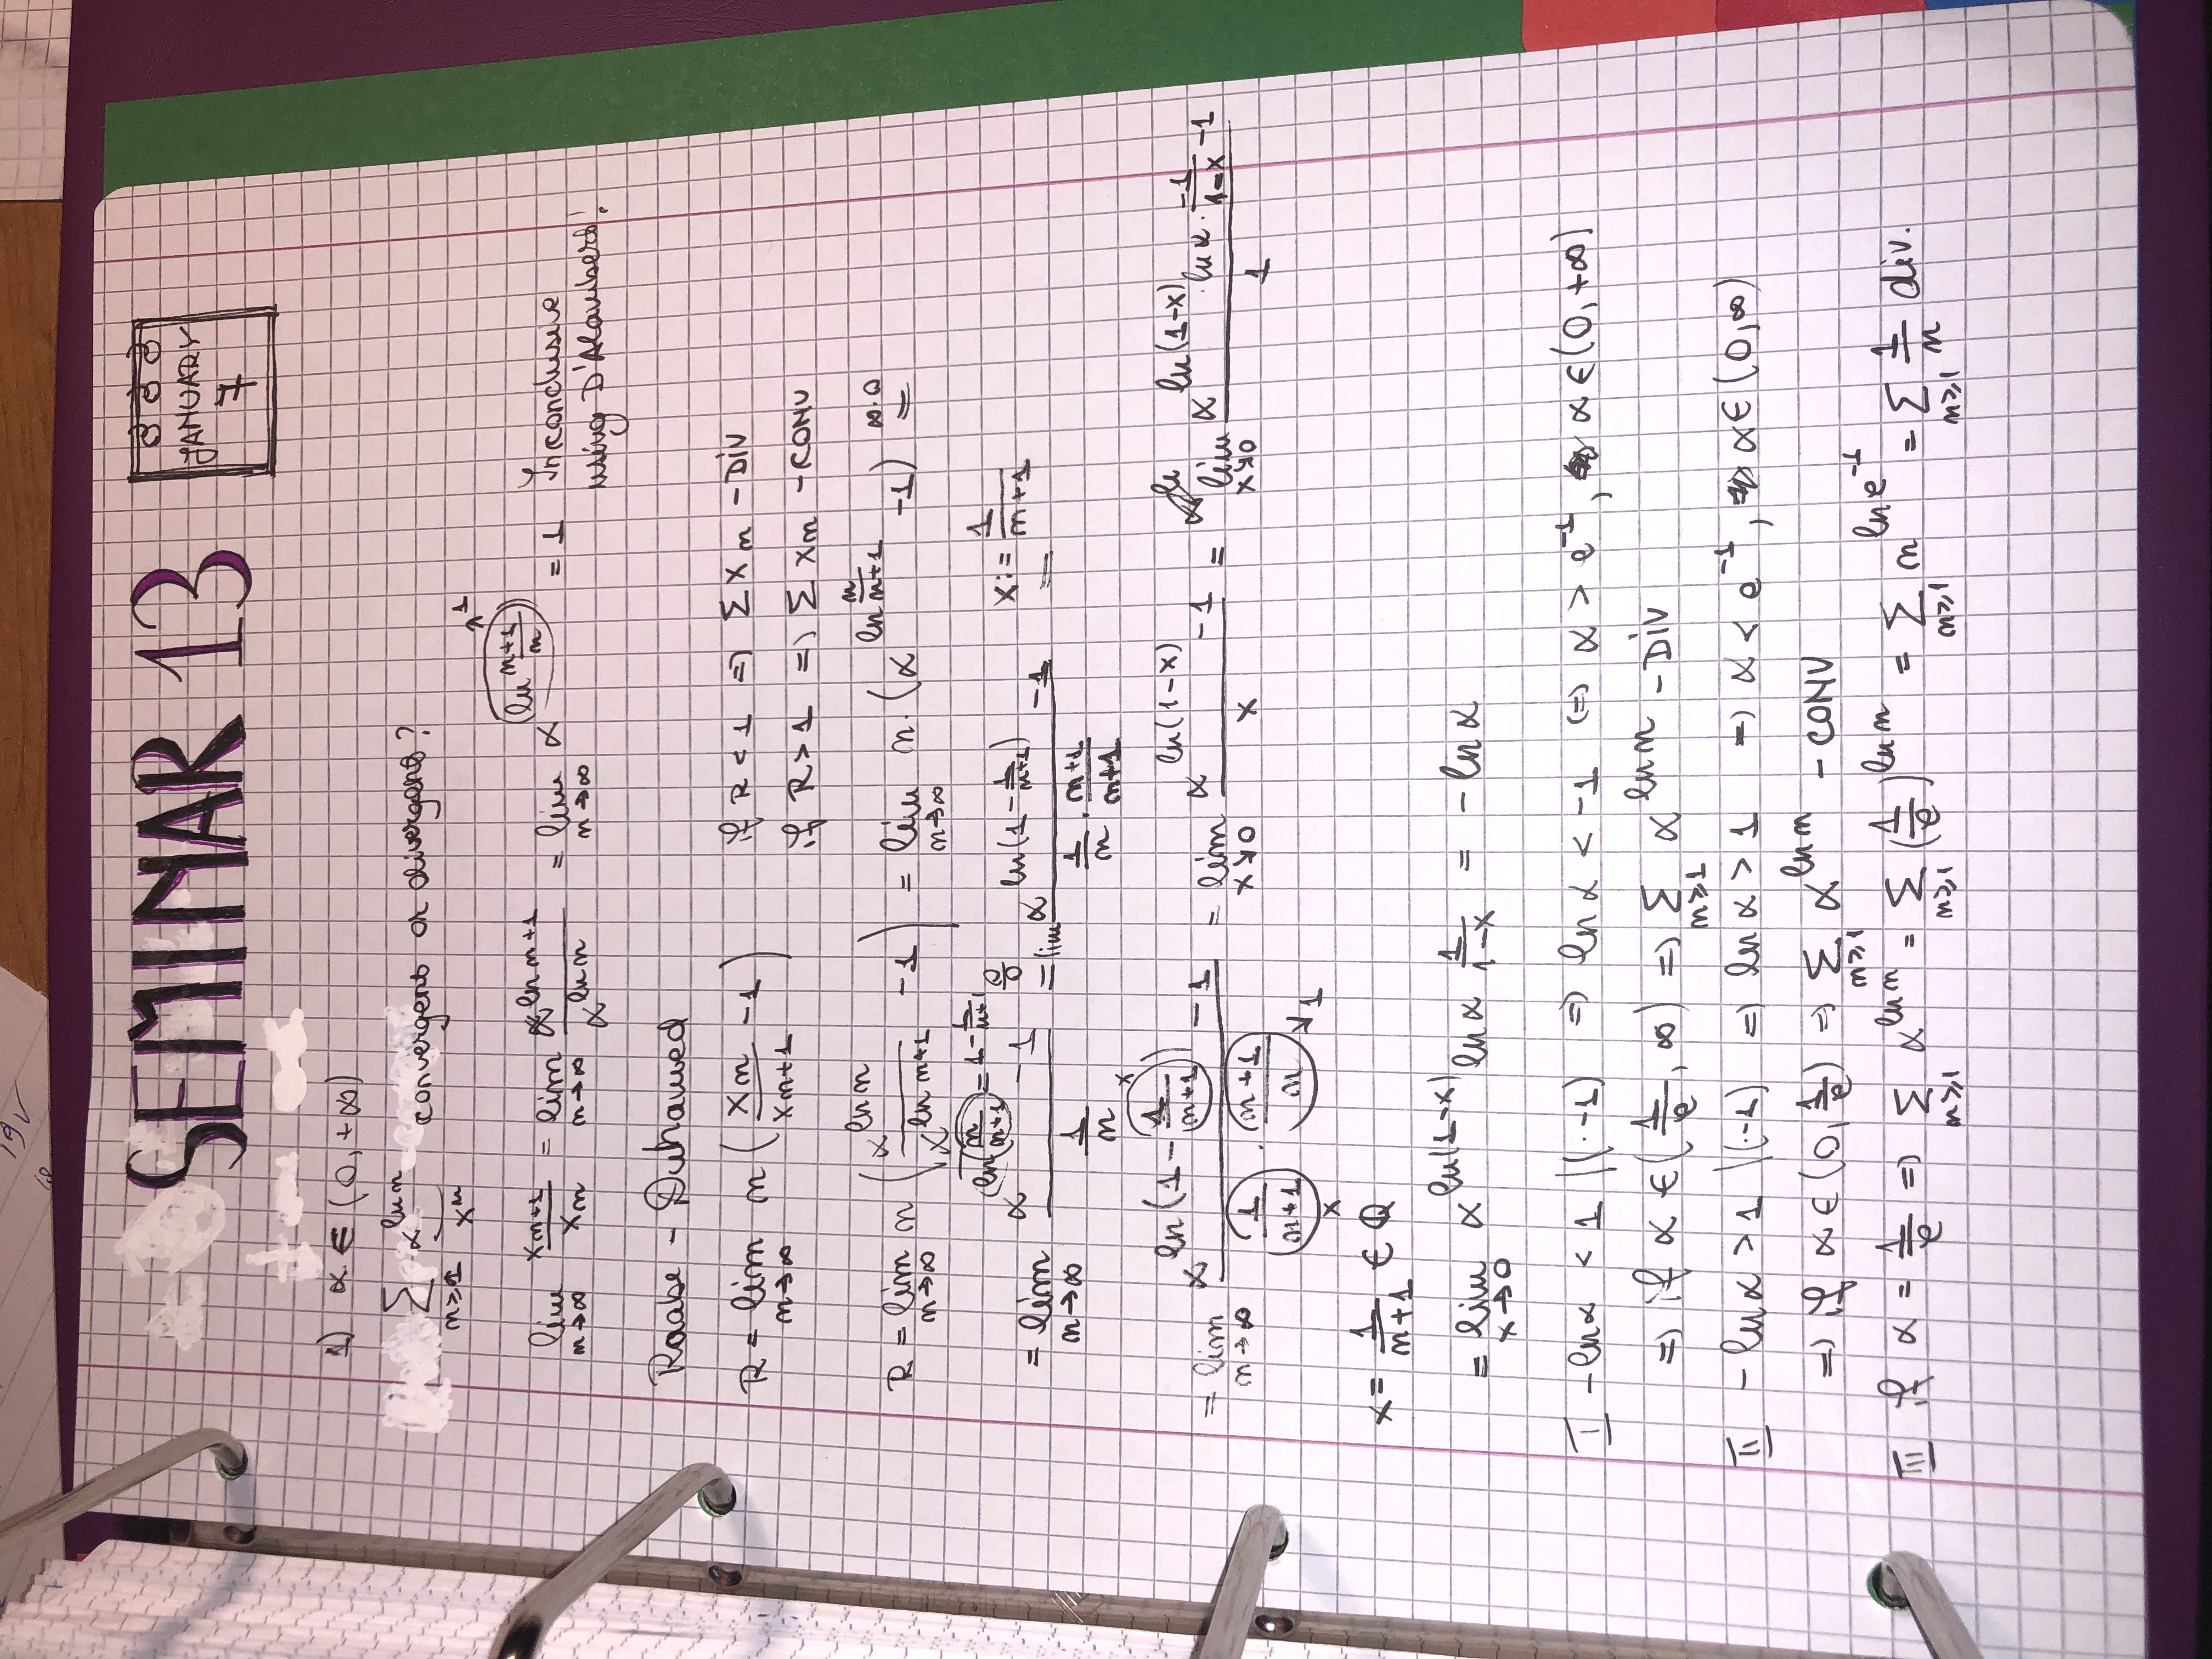 SEMINAR 13
JANUARY
7
1) α ∈ (0, +∞)
∑_{n≥1} α^{ln n} convergent or divergent?
x_n
lim_{n→∞} x_{n+1}/x_n = lim_{n→∞} α^{ln n+1}/α^{ln n} = lim_{n→∞} α^{ln (n+1)/n} ↗1 = 1 Inconclusive
using D'Alambert!
Raabe - Duhamed
R = lim_{n→∞} n (x_n/x_{n+1} - 1) if R < 1 ⇒ ∑ x_n - DIV
if R > 1 ⇒ ∑ x_n - CONV
R = lim_{n→∞} n (α^{ln n}/α^{ln n+1} - 1) = lim_{n→∞} n·(α^{ln n/(n+1)} - 1) =^{∞·0}
= lim_{n→∞} (α^{ln(n/(n+1)) = 1 - 1/(n+1)} - 1)/(1/n) =^{0/0} lim (α^{ln(1 - 1/(n+1))} - 1)/(1/n · (n+1)/(n+1)) = x := 1/(n+1)
= lim_{n→∞} (α^{ln(1 - 1/(n+1))} - 1)/(1/(n+1) · (n+1)/n) = lim_{x↘0} (α^{ln(1-x)} - 1)/x = lim_{x↘0} (α^{ln(1-x)} · ln α · -1/(1-x) - 1)/1
x x ↘1
x = 1/(n+1) ∈ Q
= lim_{x→0} α^{ln(1-x)} ln α 1/(1-x) = - ln α
I - ln α < 1 |(·-1) ⇒ ln α < -1 ⇔ α > e^{-1}, α ∈ (0, +∞)
⇒ if α ∈ (1/e, ∞) ⇒ ∑_{n≥1} α^{ln n} - DIV
II - ln α > 1 |(·-1) ⇒ ln α > 1 ⇒ α < e^{-1}, α ∈ (0, ∞)
⇒ if α ∈ (0, 1/e) ⇒ ∑_{n≥1} α^{ln n} - CONV
III if α = 1/e ⇒ ∑_{n≥1} α^{ln n} = ∑_{n≥1} (1/e)^{ln n} = ∑_{n≥1} n^{ln e^{-1}} = ∑_{n≥1} 1/n div.